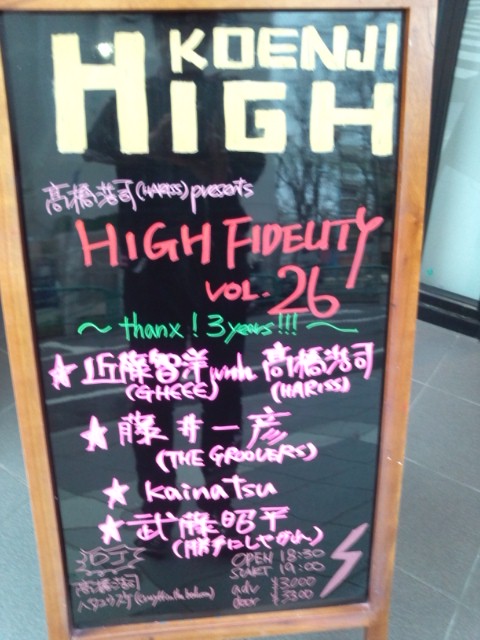 KOENJI
HIGH
高橋浩司(HARISS) presents
HIGH FIDELITY
VOL. 26
～ thanx! 3years!!! ～
★近藤智洋 with 高橋浩司
(GHEEE) (HARISS)
★藤井一彦
(THE GROOVERS)
★Kainatsu
★武藤昭平
(勝手にしやがれ)
DJ
高橋浩司
OPEN 18:30
START 19:00
adv ¥3000
door ¥3500